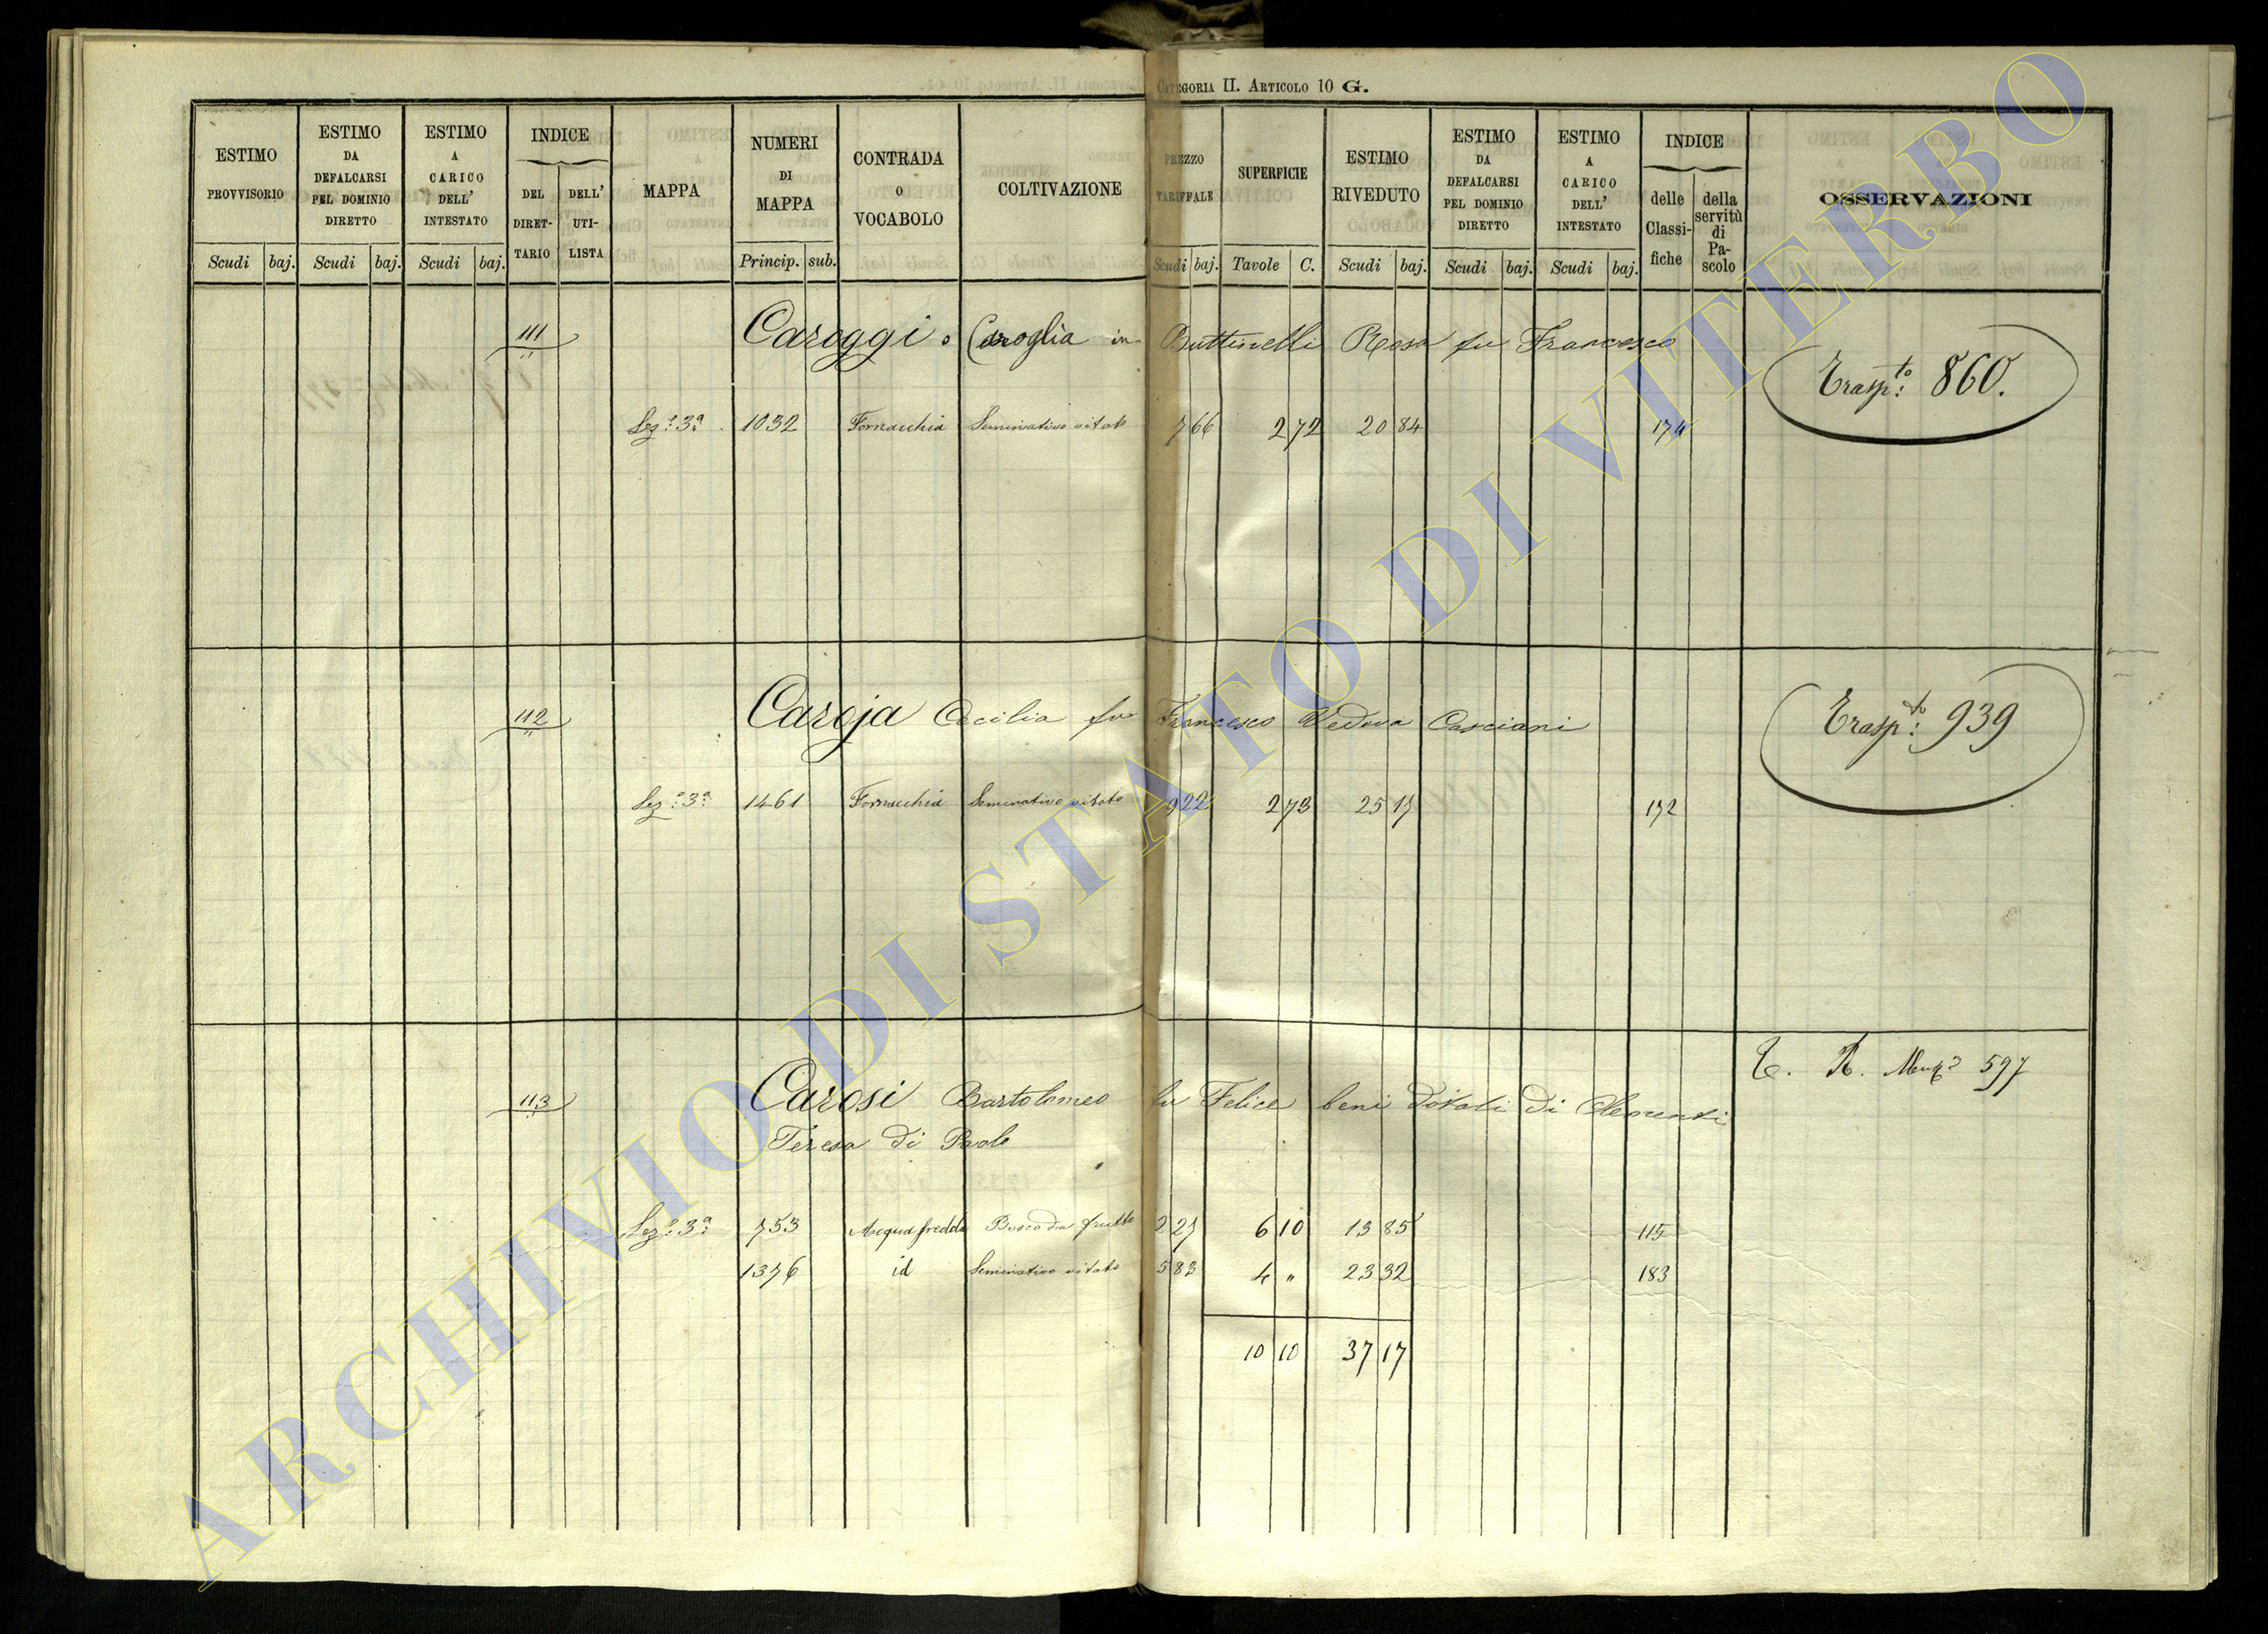 CATEGORIA II. ARTICOLO 10 G.
ESTIMO PROVVISORIO
ESTIMO DA DEFALCARSI PEL DOMINIO DIRETTO
ESTIMO A CARICO DELL' INTESTATO
INDICE
DEL DIRET-TARIO
DELL' UTI-LISTA
MAPPA
NUMERI DI MAPPA
CONTRADA O VOCABOLO
COLTIVAZIONE
PREZZO TARIFFALE
SUPERFICIE
ESTIMO RIVEDUTO
ESTIMO DA DEFALCARSI PEL DOMINIO DIRETTO
ESTIMO A CARICO DELL' INTESTATO
INDICE
delle Classi-fiche
della servitù di Pa-scolo
OSSERVAZIONI
Scudi baj. Scudi baj. Scudi baj. Princip. sub. Scudi baj. Tavole C. Scudi baj. Scudi baj. Scudi baj.
111 Caroggi o Caroglia in Buttinelli Rosa fu Francesco Trasp.to: 860.
Sez.e 3a 1032 Fornacchia Seminativo vitato 7 66 2 72 20 84 174
112 Caroja Cecilia fu Francesco Vedova Casciani Trasp.to: 939
Sez.e 3a 1461 Fornacchia Seminativo vitato 9 22 2 73 25 17 172
T. R. 597
113 Carosi Bartolomeo fu Felice beni dotali di Clementi
Teresa di Paolo
Sez.e 3a 753 Acqua fredda Bosco da frutto 2 27 6 10 13 85 115
1376 id Seminativo vitato 5 83 4 " 23 32 183
10 10 37 17
ARCHIVIO DI STATO DI VITERBO